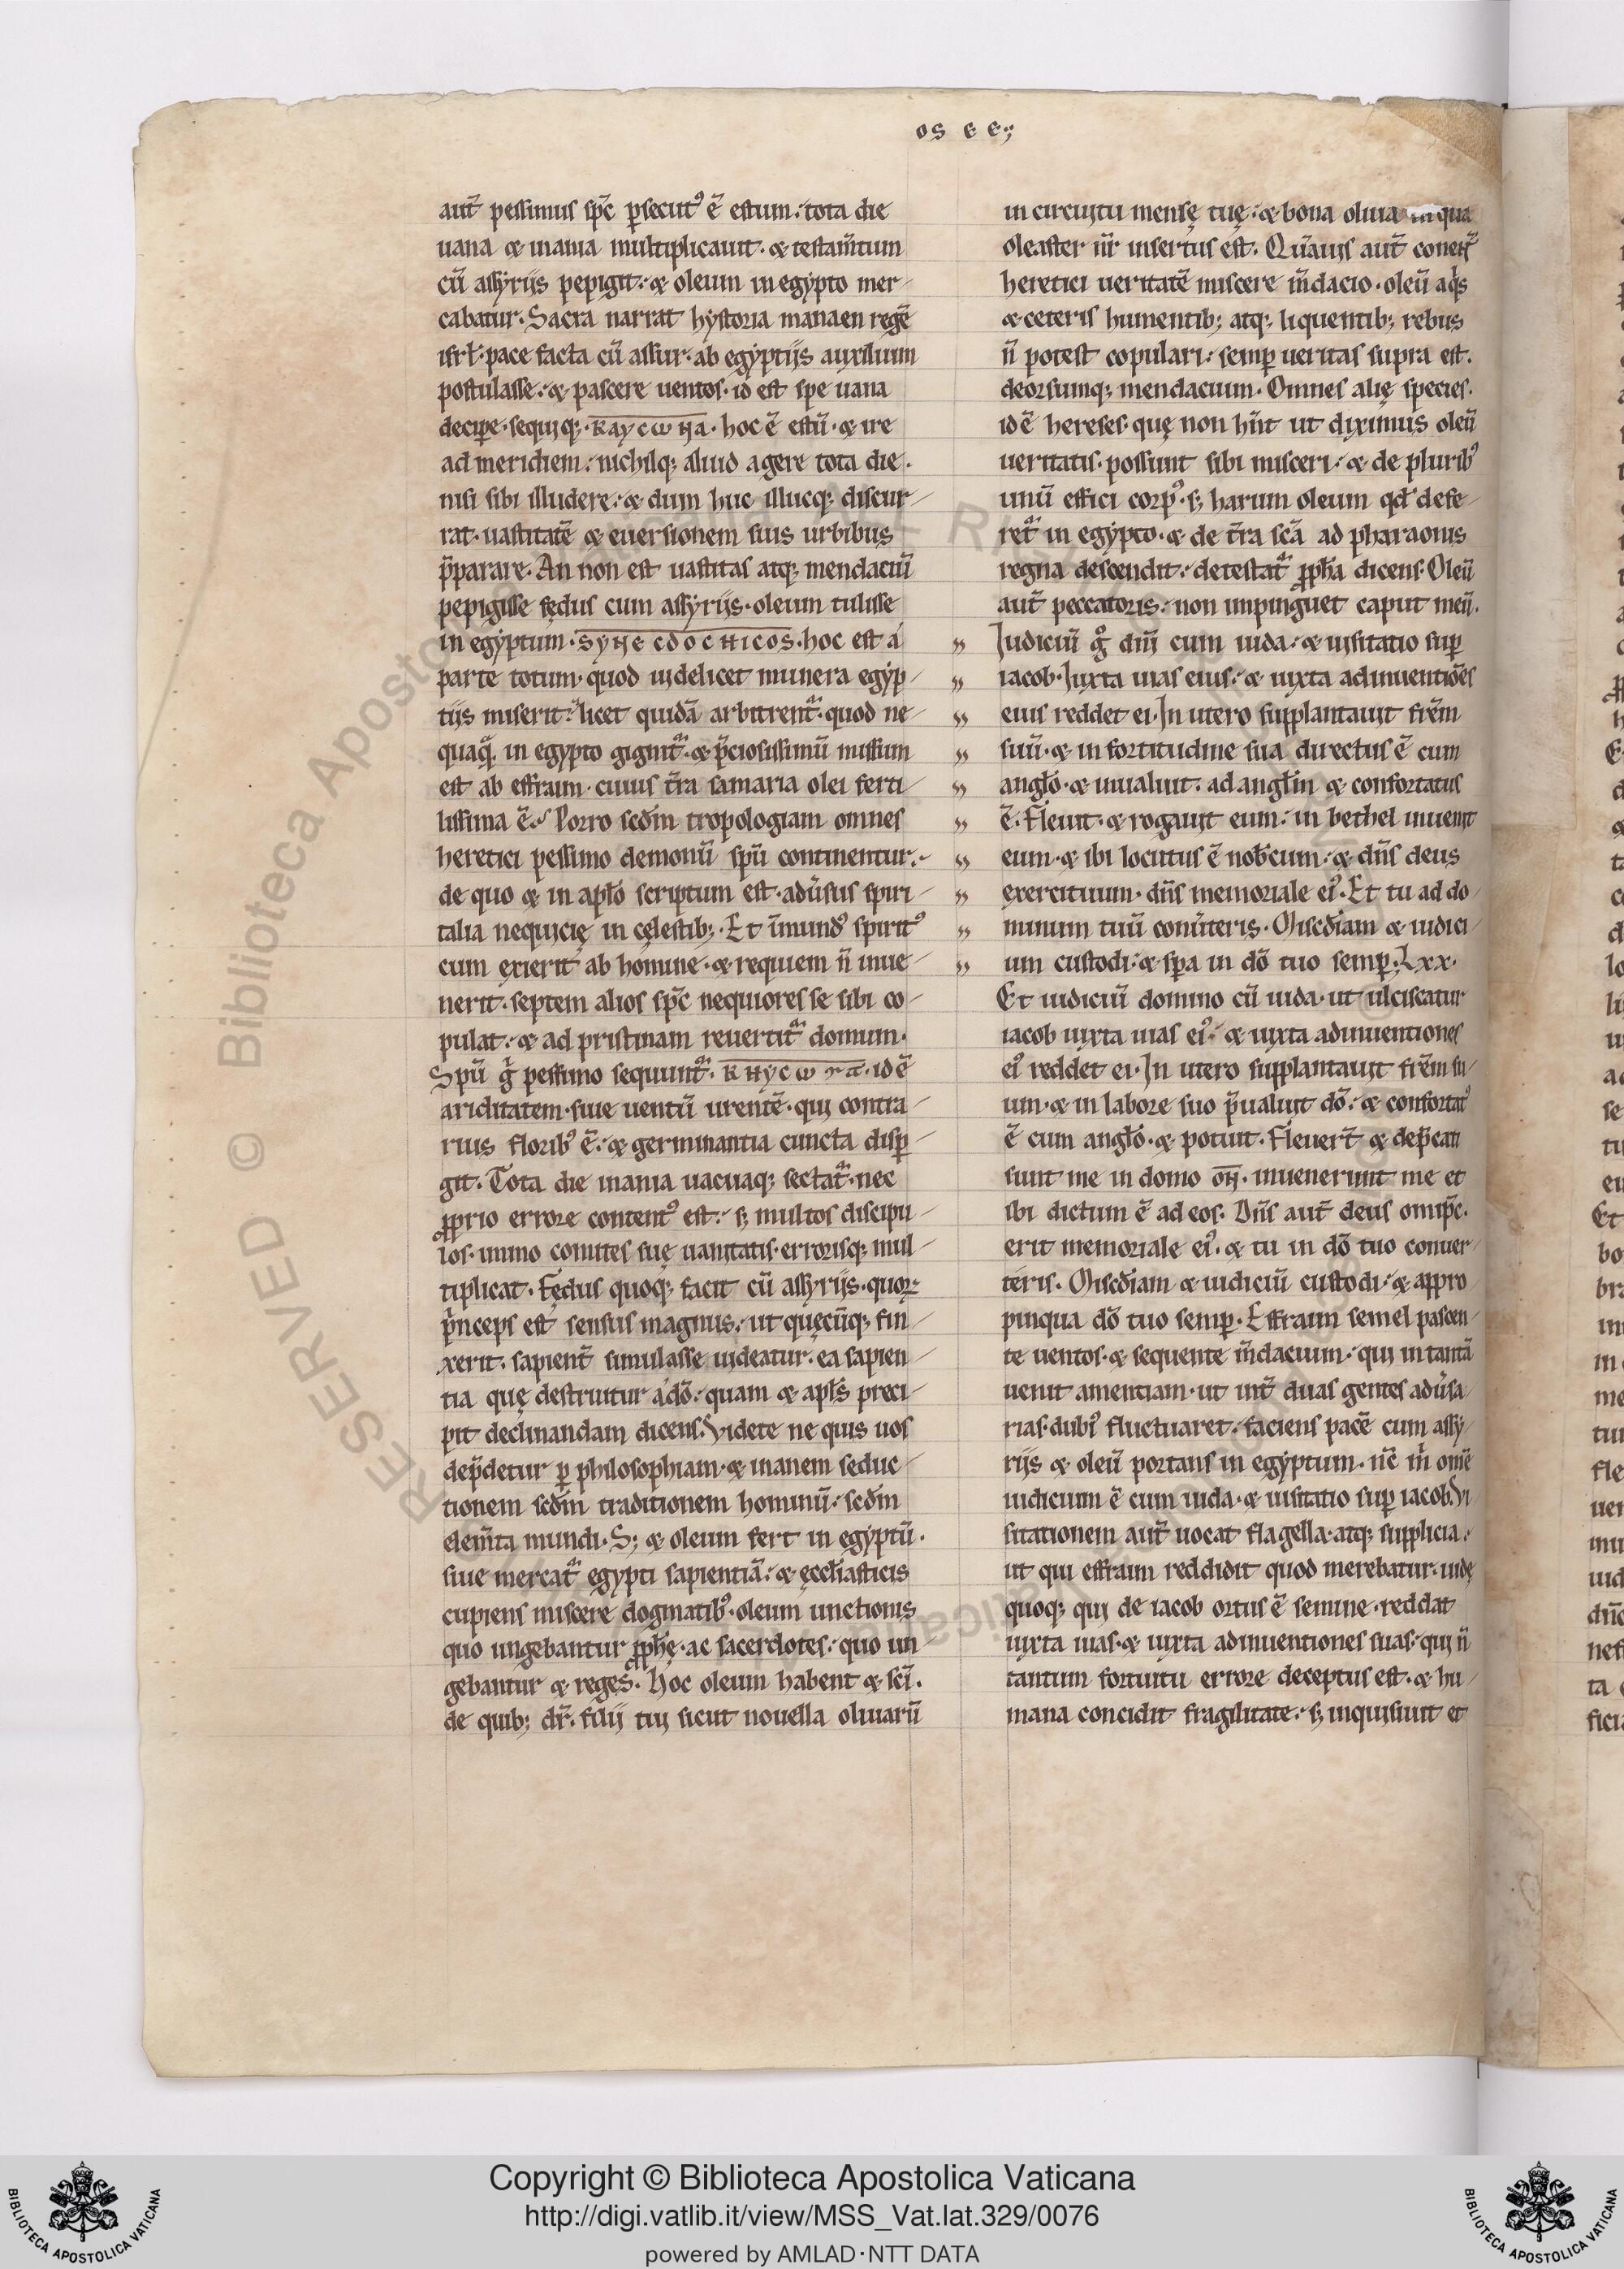 OS EE;
aut̄ pessimus sp̄c ꝑsecut⁹ ē estum: tota die
uana & inania multiplicauit· & testam̄tum
cū assyrijs pepigit: & oleum in egypto mer-
cabatur· Sacra narrat hystoria manaen regē
isrł· pace facta cū assur· ab egyptijs auxilium
postulasse: & pascere uentos· id est spe uana
decipe· sequiq;· ΚΑΥCωΝΑ· hoc ē estū· & ire
ad meridiem: nichilq; aliud agere tota die·
nisi sibi illudere: & dum huc illucq; discur-
rat· uastitatē & euersionem suis urbibus
p̄parare· An non est uastitas atq; mendaciū
pepigisse fędus cum assyrijs· oleum tulisse
in egyptum· SYNECDOCHICOS· hoc est á
parte totum· quod uidelicet munera egyp-
tijs miserit: licet quidā arbitrent᷑· quod ne-
quaq̄ in egypto gignit᷑· & p̄ciosissimū missum
est ab effraim· cuius t̄ra samaria olei ferti-
lissima ē: Porro scdm̄ tropologiam omnes
heretici pessimo demonū sp̄u continentur:
de quo & in apło scriptum est· adūsus spiri-
talia nequicię in cęlestib;· Et īmund⁹ spirit⁹
cum exierit ab homine· & requiem ñ inue-
nerit· septem alios sp̄c nequiores se sibi co-
pulat: & ad pristinam reuertit᷑ domum·
Spū g̊ pessimo sequunt᷑· ΚΑΥCωΝΑ· id ē
ariditatem· siue uentū urentē· qui contra-
rius florib⁹ ē: & germinantia cuncta disꝑ-
git· Tota die inania uacuaq; sectat᷑· nec
ꝓprio errore content⁹ est: s; multos discipu-
los· immo comites suę uanitatis· errorisq; mul-
tiplicat· Fędus quoq; facit cū assyrijs· quoꝝ
p̄nceps est sensus magnus: ut quęcūq; fin-
xerit· sapient̄ simulasse uideatur· ea sapien-
tia quę destruitur á dō: quam & apłs preci-
pit declinandam dicens· Videte ne quis uos
dep̄detur ꝑ philosophiam· & inanem seduc-
tionem scdm̄ traditionem hominū: scdm̄
elem̄ta mundi· S; & oleum fert in egyptū·
siue mercat᷑ egypti sapientiā: & ęcclīasticis
cupiens miscere dogmatib⁹· oleum unctionis
quo ungebantur ꝓph̄ę· ac sacerdotes: quo un-
gebantur & reges· Hoc oleum habent & sc̄i·
de quib; dr̄· filij tui sicut nouella oliuarū
in circuitu mensę tuę: & bona oliua in qua
oleaster nr̄ insertus est· Quāuis aut̄ conent᷑
heretici ueritatē miscere m̄dacio· oleū aq̄s
& ceteris humentib; atq; liquentib; rebus
ñ potest copulari: semꝑ ueritas supra est·
deorsumq; mendacium· Omnes alię species·
id ē hereses· quę non hn̄t ut diximus oleū
ueritatis· possunt sibi misceri: & de plurib⁹
unū effici corp⁹· s; harum oleum qd̄ defe-
ret᷑ in egypto· & de t̄ra sc̄a ad pharaonis
regna descendit: detestat᷑ ꝓph̄a dicens· Oleū
aut̄ peccatoris: non impinguet caput meū·
„ Iudiciū g̊ dn̄i cum iuda: & uisitatio suꝑ
„ iacob· Iuxta uias eius: & iuxta adinuentiōes
„ eius reddet ei· In utero supplantauit fr̄em
„ suū· & in fortitudine sua directus ē cum
„ angło· & inualuit· ad angłm & confortatus
„ ē· Fleuit· & rogauit eum: in bethel inuenit
„ eum· & ibi locutus ē nob̄cum: & dn̄s deus
„ exercituum· dn̄s memoriale ei⁹· Et tu ad do-
„ minum tuū conūteris· Misc̄diam & iudici-
„ um custodi: & sp̄a in dō tuo semꝑ· Lxx·
Et iudiciū domino cū iuda· ut ulciscatur
iacob iuxta uias ei⁹: & iuxta adinuentiones
ei⁹ reddet ei· In utero supplantauit fr̄em su-
um· & in labore suo p̄ualuit dō: & confortat⁹
ē cum angło· & potuit· Fleuert̄ & dep̄cati
sunt me in domo ΟΝ· inuenerunt me et
ibi dictum ē ad eos· Dn̄s aut̄ deus omip̄c·
erit memoriale ei⁹· & tu in dō tuo conuer-
teris· Misc̄diam & iudiciū custodi: & appro-
pinqua dō tuo semꝑ· Effraim semel pascen-
te uentos· & sequente m̄dacium: qui in tantā
uenit amentiam· ut int̄ duas gentes adūsa-
rias· dubi⁹ fluctuaret: faciens pacē cum assy-
rijs & oleū portans in egyptum· nc̄ m̄ omē
iudicium ē cum iuda· & uisitatio suꝑ iacob· Vi-
sitationem aut̄ uocat flagella· atq; supplicia:
ut qui effraim reddidit quod merebatur· iudę
quoq; qui de iacob ortus ē semine· reddat
iuxta uias· & iuxta adinuentiones suas: qui ñ
tantum fortuitu errore deceptus est· & hu-
mana concidit fragilitate: s; inquisiuit et
Copyright © Biblioteca Apostolica Vaticana
http://digi.vatlib.it/view/MSS_Vat.lat.329/0076
powered by AMLAD·NTT DATA
BIBLIOTECA APOSTOLICA VATICANA
BIBLIOTECA APOSTOLICA VATICANA